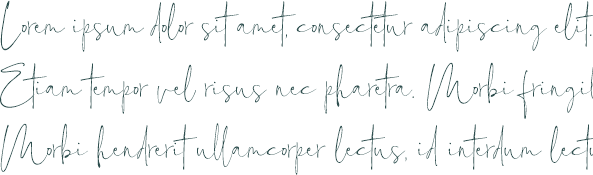 Lorem ipsum dolor sit amet, consectetur adipiscing elit.
Etiam tempor vel risus nec pharetra. Morbi fringil
Morbi hendrerit ullamcorper lectus, id interdum lectu